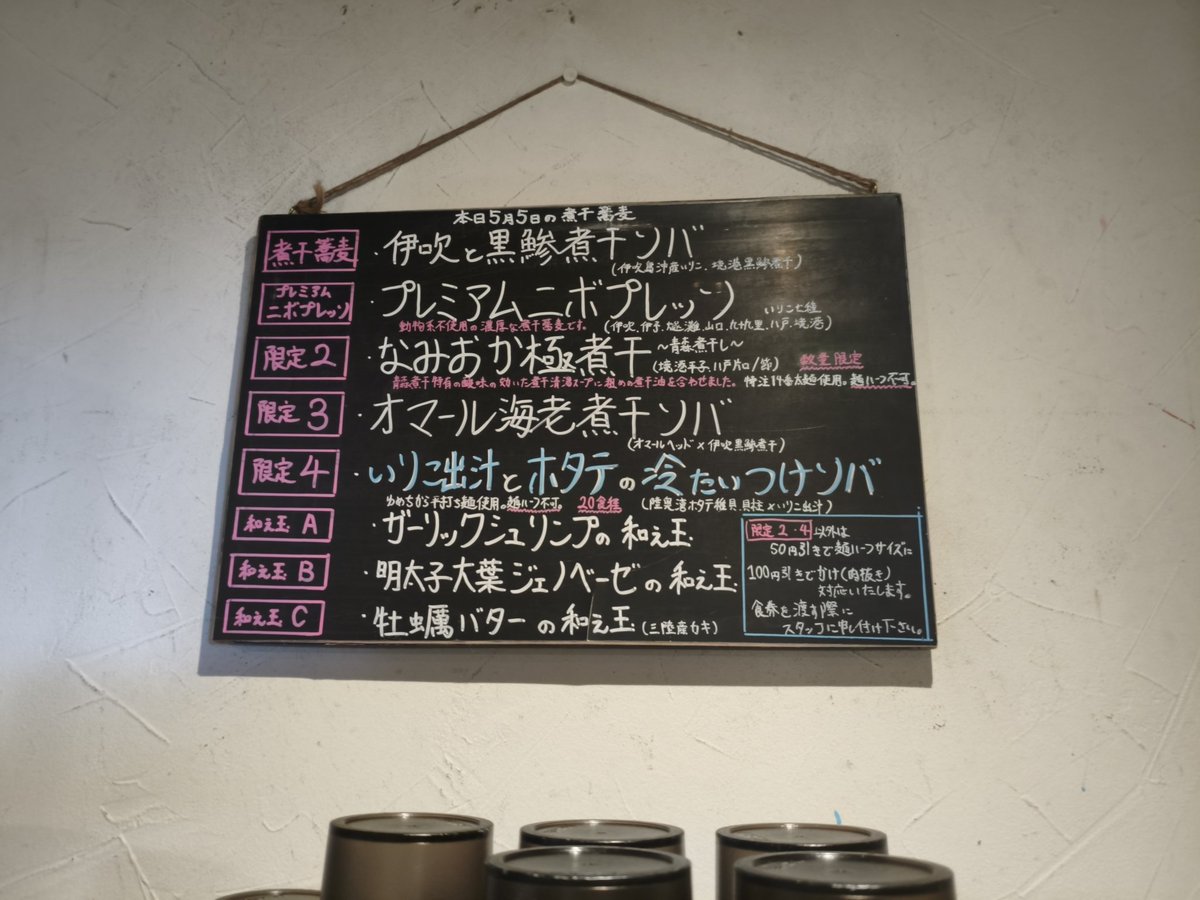 本日5月5日の煮干蕎麦
煮干蕎麦 ・伊吹と黒鯵煮干ソバ
(伊吹島沖産いりこ、境港黒鯵煮干)
プレミアムニボプレッソ ・プレミアムニボプレッソ いりこ七種
動物系不使用の濃厚な煮干蕎麦です。 (伊吹、伊予、燧灘、山口、九十九里、八戸、境港)
限定2 ・なみおか極煮干 ～青森煮干し～
(境港平子、八戸片口/節) 数量限定
青森煮干特有の酸味の効いた煮干清湯スープに粗めの煮干油を合わせました。 特注14番太麺使用。麺ハーフ不可。
限定3 ・オマール海老煮干ソバ
(オマールヘッド×伊吹黒鯵煮干)
限定4 ・いりこ出汁とホタテの冷たいつけソバ
ゆめちから手打ち麺使用。麺ハーフ不可。 20食程 (陸奥湾ホタテ稚貝、貝柱×いりこ出汁)
和え玉 A ・ガーリックシュリンプの和え玉
和え玉 B ・明太子大葉ジェノベーゼの和え玉
和え玉 C ・牡蠣バターの和え玉 (三陸産カキ)
限定2・4 以外は
50円引きで麺ハーフサイズに
100円引きでかけ(肉抜き)
対応いたします。
食券を渡す際に
スタッフに申し付け下さい。